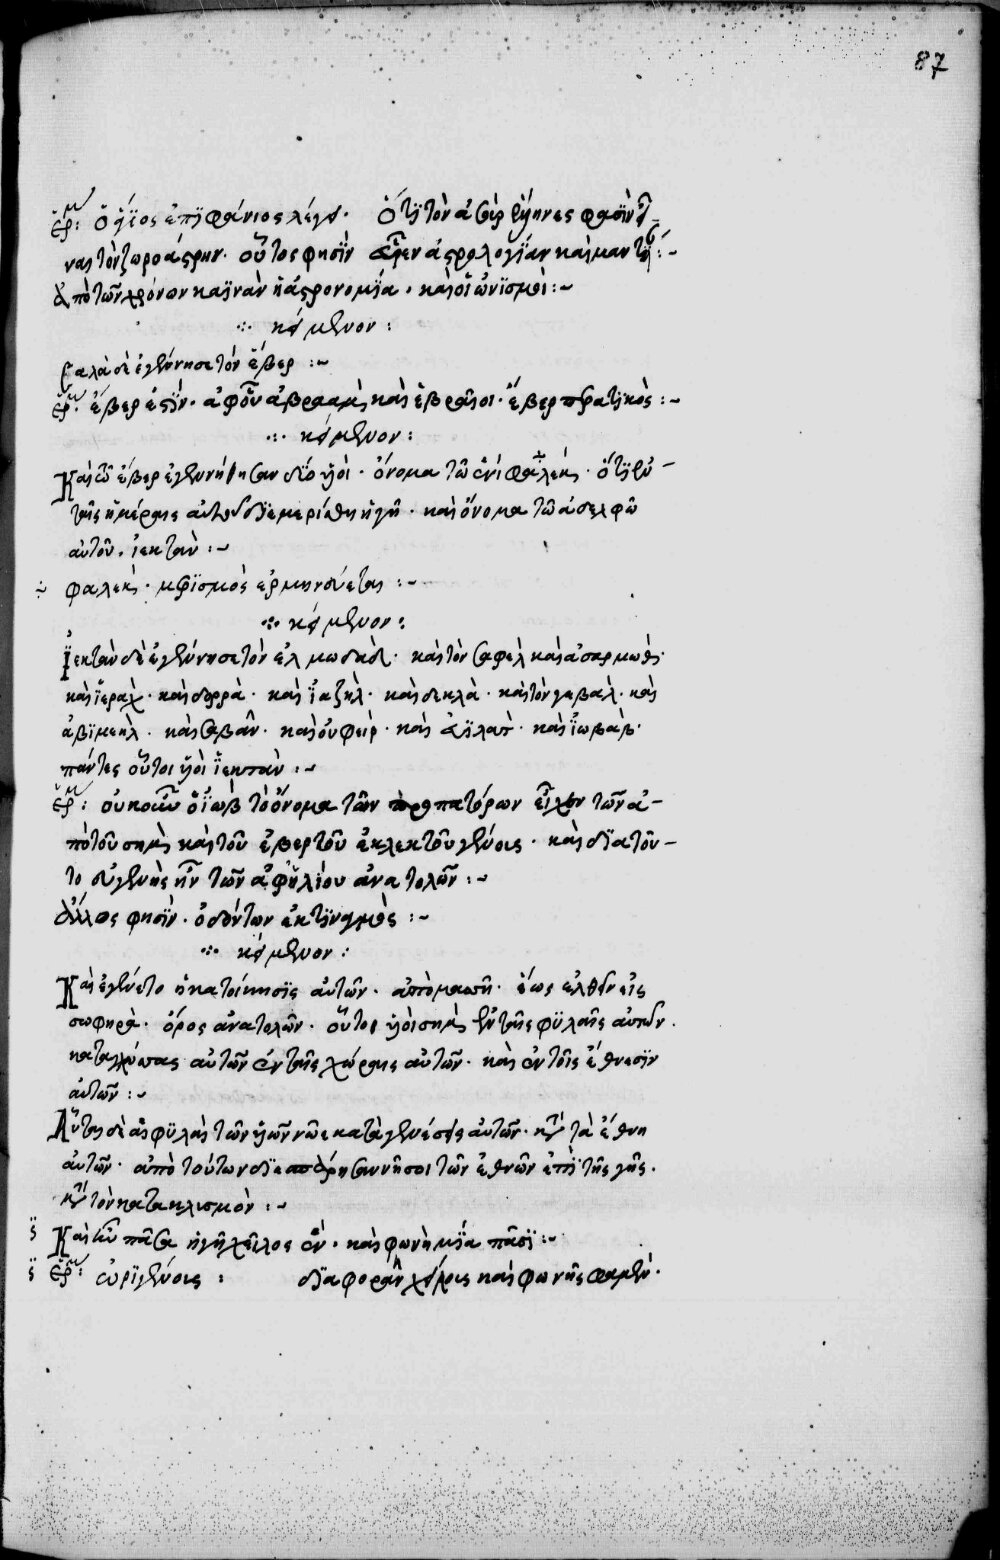 87
ἑρμ: ὁ ἅγϊος ἐπϊφάνιος λέγει. Ὅτϊ τὸν ἀσὶρ ἕλληνες φασὶν εἶ-
ναι τὸν ζωροάστρην. οὗτος φησῒν εὗρεν ἀστρολογίαν καὶ μαντϊ:~
ἀπὸ τῶν χρόνων καϊνὰν ἡ ἀστρονομία. καὶ οἱ ὠνϊσμοὶ:~
κείμενον:
σαλὰ δὲ ἐγέννησε τὸν ἕβερ:~
ἑρμ. ἕβερ ἐστϊν. ἀφ οὗ ἀβραὰμ καὶ ἑβραῖοι. ἕβερ περατϊκός:~
κείμενον:
Καὶ τῶ ἕβερ ἐγεννήθησαν δύο υἱοὶ. ὄνομα τῶ ἑνὶ φαλὲκ. ὅτϊ ἐν
ταῖς ἡμέραις αὐτοῦ διεμερίσθη ἡ γῆ. καὶ ὄνομα τῶ ἀδελφῶ
αὐτοῦ. ἰεκτὰν:~
φαλὲκ. μερϊσμὸς ἑρμηνεύεται:~
κείμενον:
Ἰεκτὰν δὲ ἐγέννησε τὸν ἐλμωδὰδ. καὶ τὸν σαφὲλ καὶ ἀσαρμὼθ.
καὶ ἰεράχ. καὶ ὀδορρὰ. καὶ ἰαζὴλ. καὶ δεκλὰ. καὶ τὸν γεβαὶλ. καὶ
ἀβϊμεὴλ. καὶ σαβᾶν. καὶ οὐφεὶρ. καὶ εὐϊλὰτ. καὶ ἰωβὰβ.
πάντες οὗτοι υἱοὶ ἰεκτὰν:~
ἑρμ: οὐκοῦν ὁ ἰὼβ τὸ ὄνομα τῶν προπατόρων εἷλεν τῶν ἀ-
πὸ τοῦ σὴμ καὶ τοῦ ἕβερ τοῦ ἐκλεκτοῦ γένους. καὶ διὰ τοῦ-
το εὐγενὴς ἦν τῶν ἀφ ἡλίου ἀνατολῶν:~
Ἄλλος φησῒν. ὀδόντων ἐκτϊναγμὸς:~
κείμενον:
Καὶ ἐγένετο ἡ κατοίκησϊς αὐτῶν. ἀπὸ μασσῆ. ἕως ἐλθεῖν εἰς
σωφηρὰ. ὄρος ἀνατολῶν. οὗτοι υἱοὶ σὴμ ἐν ταῖς φϋλαῖς αὐτῶν.
κατὰ γλώσσας αὐτῶν ἐν ταῖς χώραις αὐτῶν. καὶ ἐν τοῖς ἔθνεσϊν
αὐτῶν:~
Αὗται δὲ αἱ φϋλαὶ τῶν υἱῶν νῶε κατὰ γενέσεις αὐτῶν. κατὰ τὰ ἔθνη
αὐτῶν. ἀπὸ τούτων διεσπάρησαν νῆσοι τῶν ἐθνῶν ἐπὶ τῆς γῆς.
μετὰ τὸν κατακλισμὸν:~
Καὶ ἦν πᾶσα ἡ γῆ χεῖλος ἓν. καὶ φωνὴ μία πᾶσϊ:~
ἑρμ: ὠρϊγένους: διαφορὰν χείλους καὶ φωνῆς φαμὲν.